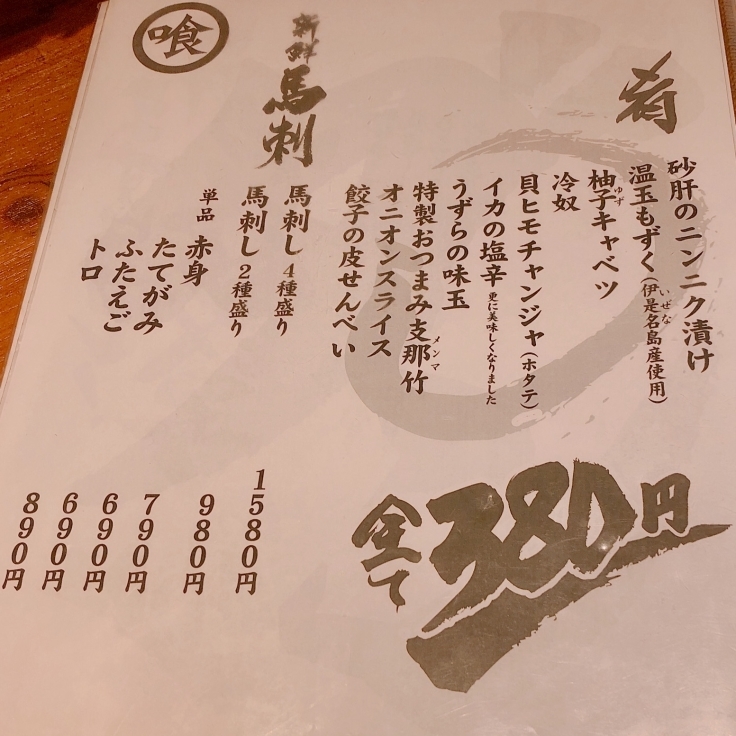 肴
砂肝のニンニク漬け
温玉もずく(伊是名島産使用)
いぜな
柚子キャベツ
ゆず
冷奴
貝ヒモチャンジャ(ホタテ)
イカの塩辛 更に美味しくなりました
うずらの味玉
特製おつまみ支那竹
メンマ
オニオンスライス
餃子の皮せんべい
全て380円
新鮮馬刺
馬刺し4種盛り 1580円
馬刺し2種盛り 980円
単品 赤身 790円
たてがみ 690円
ふたえご 690円
トロ 890円
喰